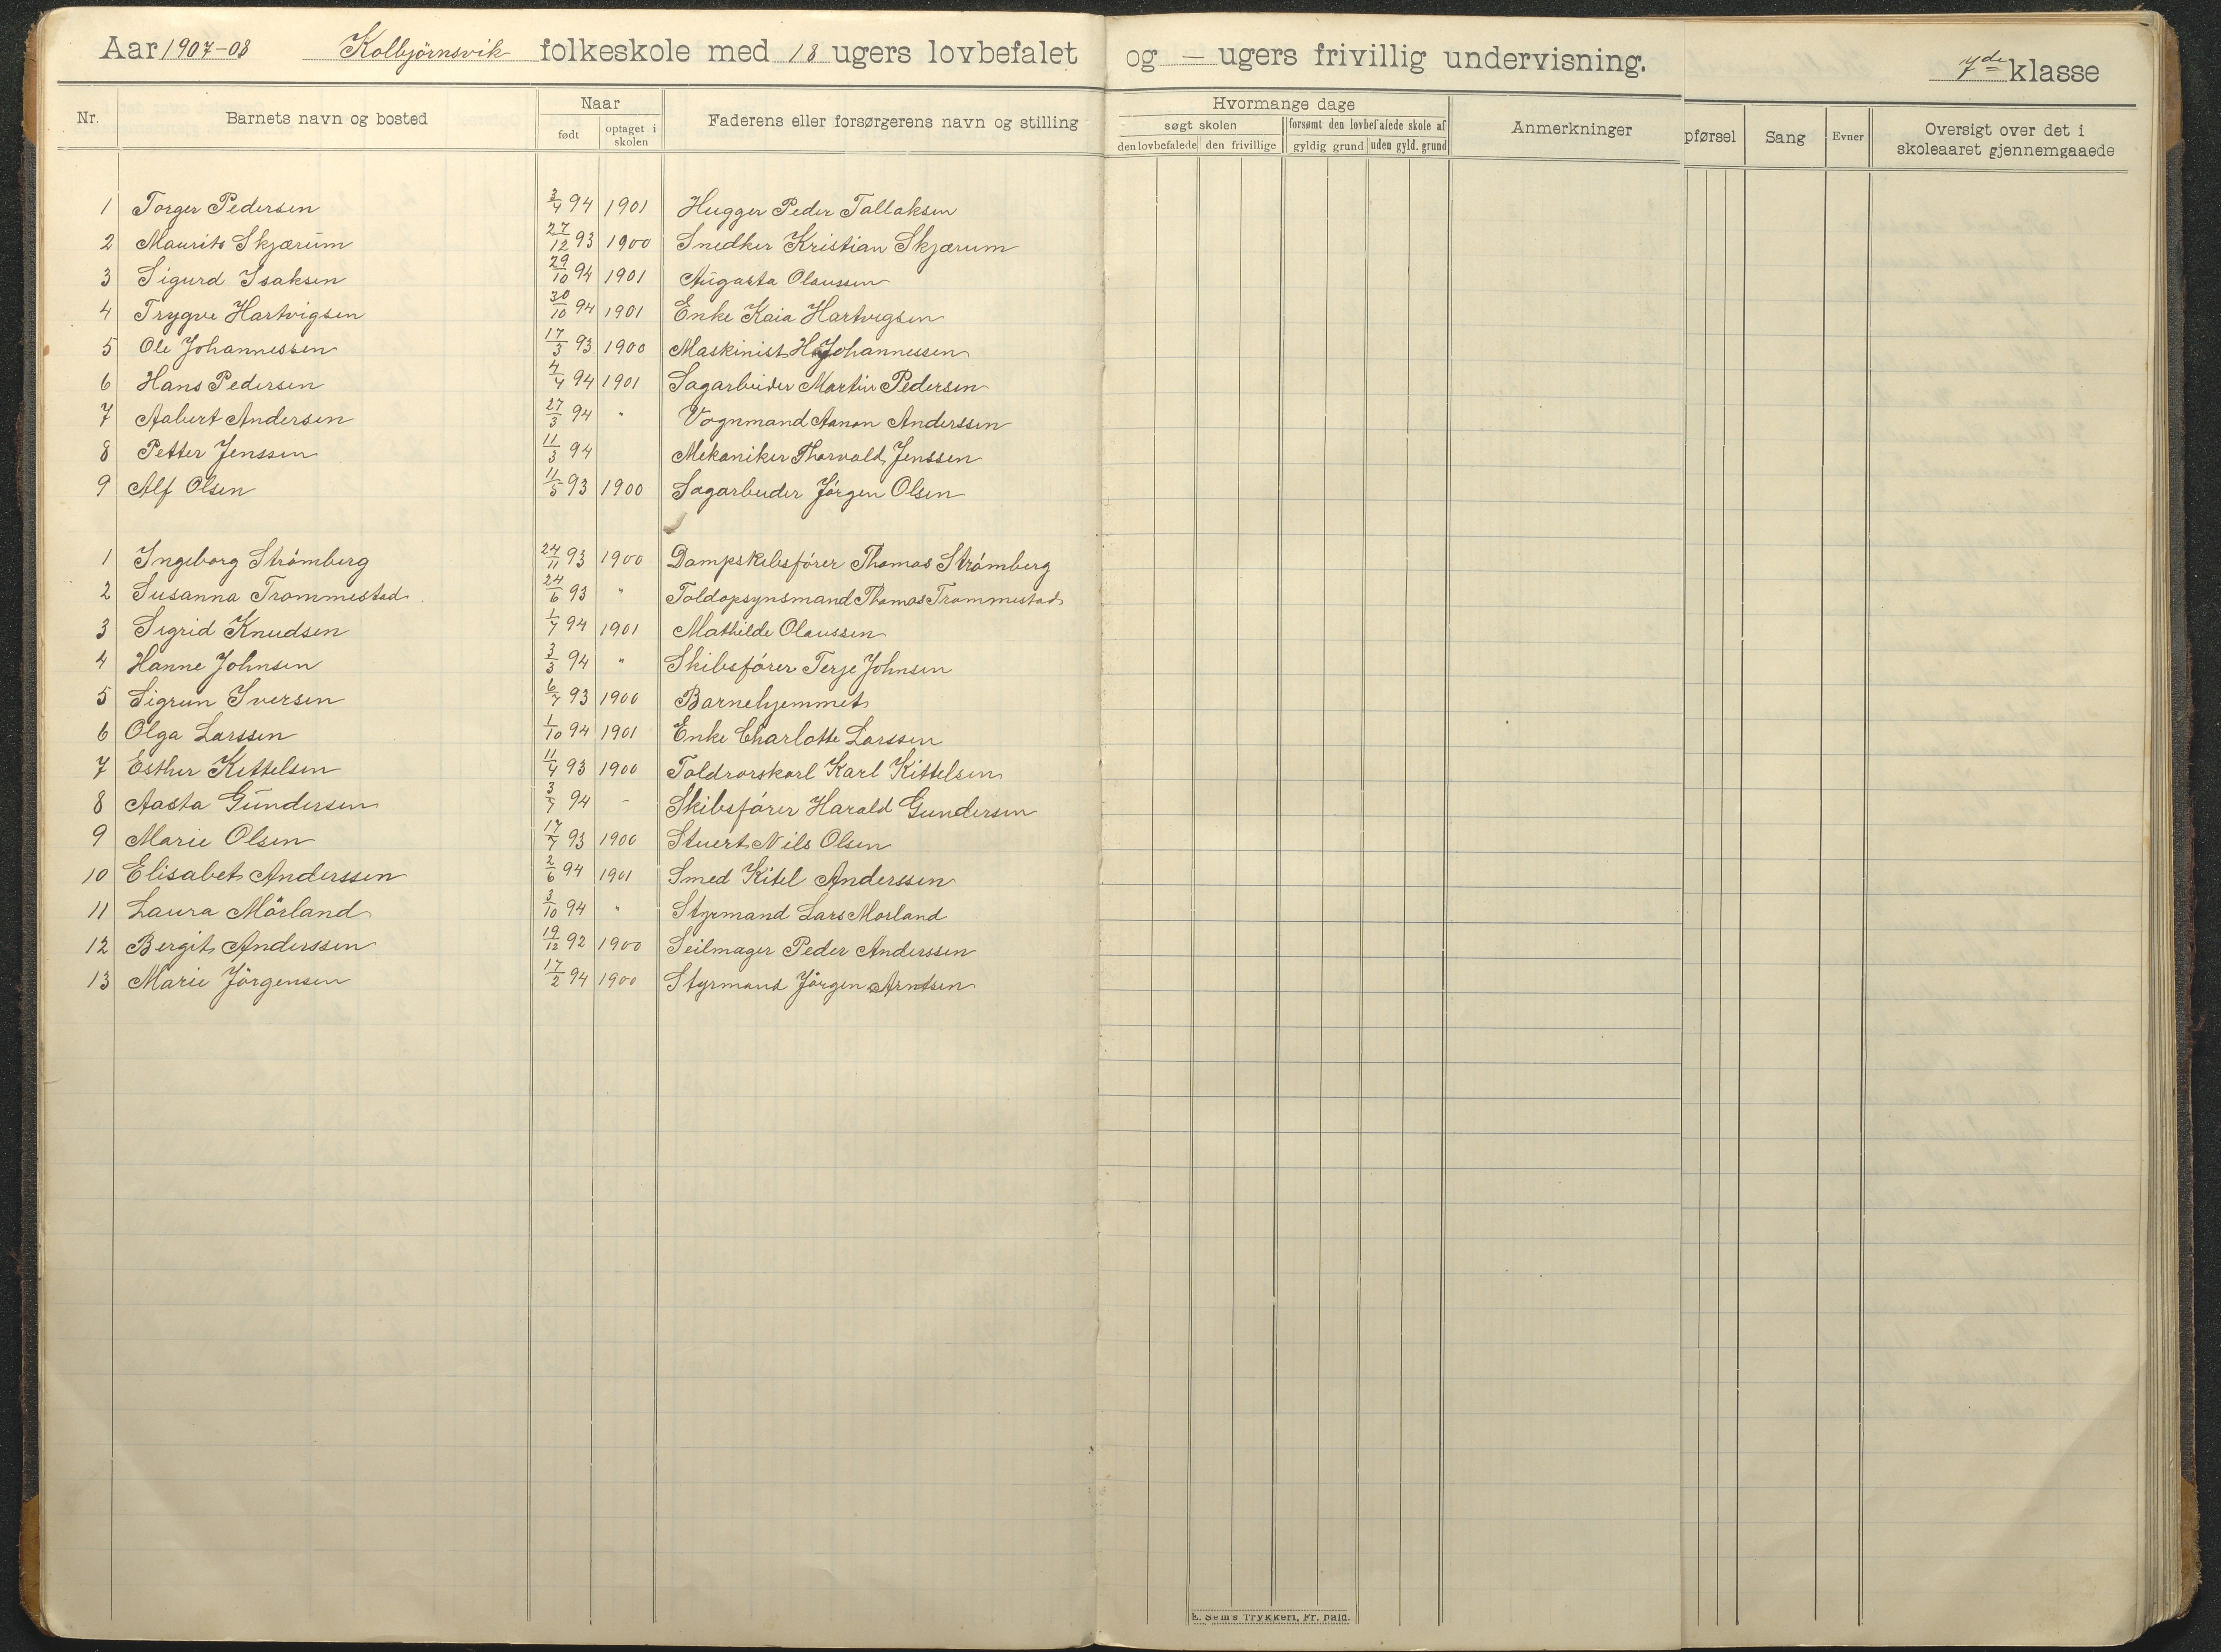 Aar 1907-08 Kolbjørnsvik folkeskole med 18 ugers lovbefalet og — ugers frivillig undervisning. 7de klasse
Nr. Barnets navn og bosted Naar Faderens eller forsørgerens navn og stilling Hvormange dage Anmerkninger pførsel Sang Evner Oversigt over det i skoleaaret gjennemgaaede
født optaget i skolen søgt skolen forsømt den lovbefalede skole af
den lovbefalede den frivillige gyldig grund uden gyld. grund
1 Torger Pedersen 3/4 94 1901 Hugger Peder Tallaksen
2 Maurits Skjærum 27/12 93 1900 Snedker Kristian Skjærum
3 Sigurd Isaksen 29/10 94 1901 Augasta Olaussen
4 Trygve Hartvigsen 30/10 94 1901 Enke Kaia Hartvigsen
5 Ole Johannessen 17/3 93 1900 Maskinist H Johannessen
6 Hans Pedersen 4/4 94 1901 Sagarbeider Martin Pedersen
7 Aabert Andersen 27/3 94 " Vognmand Aanon Anderssen
8 Petter Jenssen 11/3 94 Mekaniker Thorvald Jenssen
9 Alf Olsen 11/5 93 1900 Sagarbeider Jörgen Olsen
1 Ingeborg Strömberg 24/11 93 1900 Dampskibsförer Thomas Strömberg
2 Susanna Trommestad 24/6 93 " Toldopsynsmand Thomas Trommestad
3 Sigrid Knudsen 1/7 94 1901 Mathilde Olaussen
4 Hanne Johnsen 3/3 94 " Skibsförer Terje Johnsen
5 Sigrun Iversen 6/7 93 1900 Barnehjemmet
6 Olga Larssen 1/10 94 1901 Enke Charlotte Larssen
7 Esther Kittelsen 11/4 93 1900 Toldrorskarl Karl Kittelsen
8 Aasta Gundersen 3/7 94 - Skibsförer Harald Gundersen
9 Marie Olsen 17/7 93 1900 Stuert Nils Olsen
10 Elisabet Anderssen 2/6 94 1901 Smed Kitel Anderssen
11 Laura Mörland 3/10 94 " Styrmand Lars Morland
12 Bergit Anderssen 19/12 92 1900 Seilmager Peder Anderssen
13 Marie Jörgensen 17/2 94 1900 Styrmand Jörgen Arntsen
E. Sem's Trykkeri, Fr.hald.